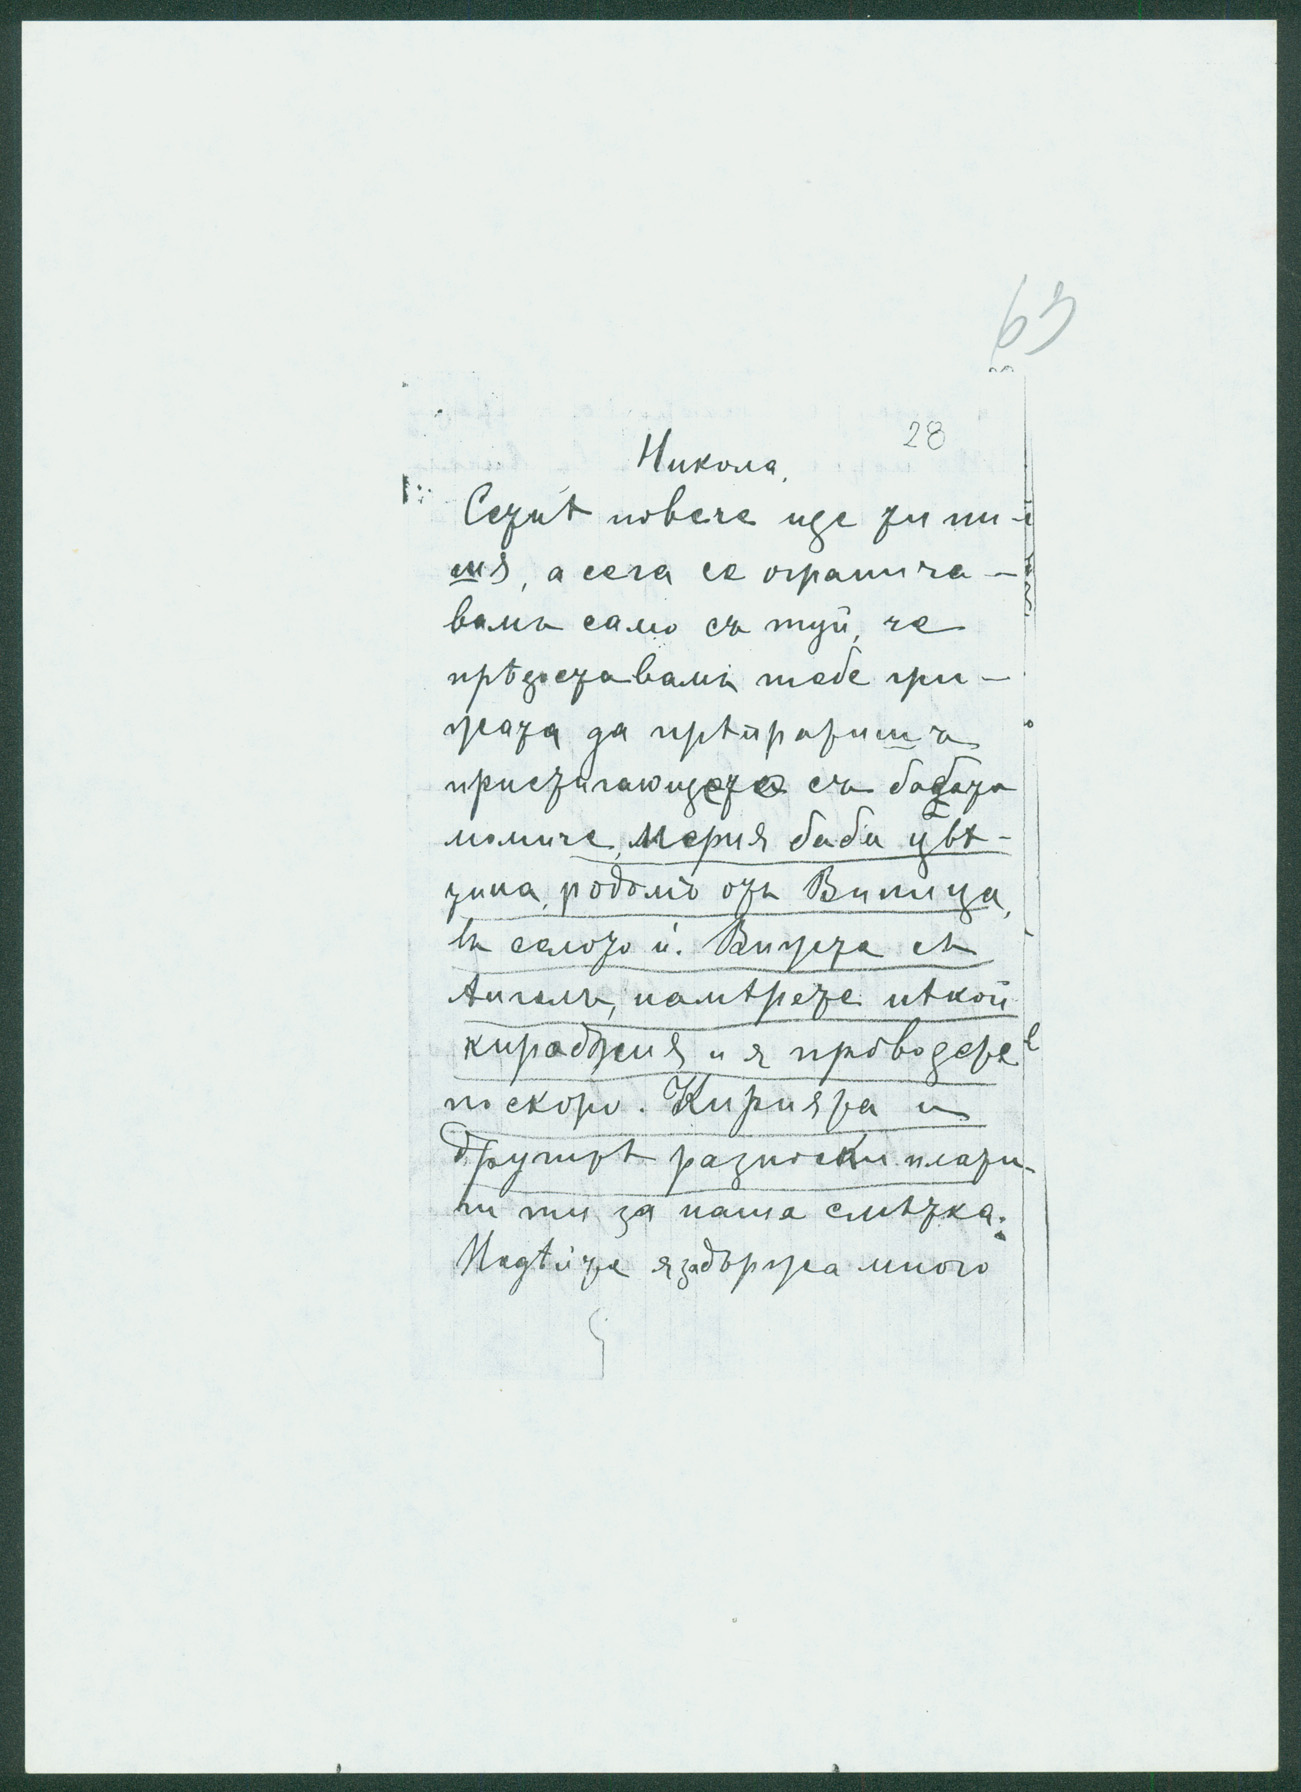 63
28
Никола,
Сетнѣ повече ще ти пи-
шѫ, а сега се огранича-
вамъ само съ туй, че
прѣдоставамъ тебе гри-
жата да прѣпратишъ
пристигающата съ бабата
момиче, Мария баби Цвѣ-
тина, родомъ отъ Виница,
въ селото ѝ. Вижте съ
Ангелъ, намѣрете нѣкой
кираджия и я проводете
по скоро. Кирията и
другитѣ разноски плати
ти за наша смѣтка.
Недѣйте я задържа много